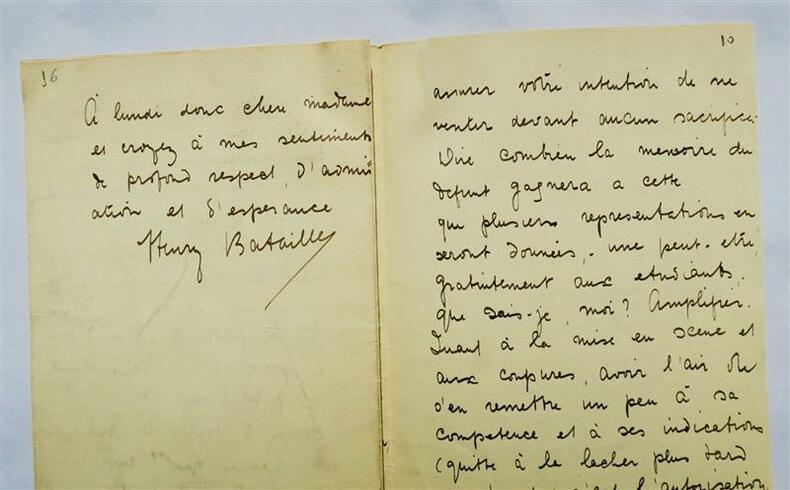 16
À lundi donc chere madame
et croyez à mes sentiments
de profond respect, d'admir
ation et d'esperance
Henry Bataille
10
assurer votre intention de ne
devant aucun sacrifice.
Dire combien la memoire du
defunt gagnera a cette
que plusieurs representations en
seront données, - une peut-etre,
gratuitement aux etudiants,
que sais-je, moi? Amplifier.
Quant à la mise en scene et
aux coupures, avoir l'air de
s'en remettre un peu à sa
competence et à ses indications
(quitte à le lacher plus tard
l'autorisation